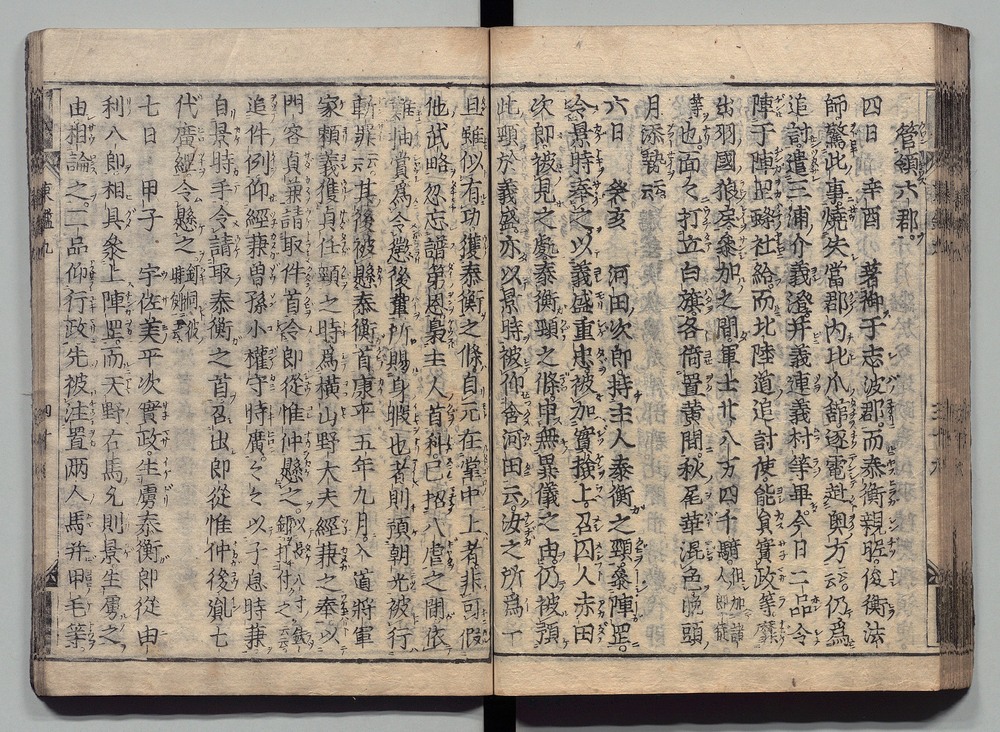 管領六郡
四日　辛酉　著御于志波郡而泰衡親眤俊衡法
師驚此事燒失當郡内比爪舘逐電趣奥方云云仍爲
追討遣三浦介義澄并義連義村等畢今日二品令
陣于陣罡蜂社給而北陸道追討使能員實政等靡
出羽國狼唳參加之間軍士廿八万四千騎但加諸人郎從
等也面々打立白旗各倚置黄間秋尾華混色晩頭
月添勢云云
六日　癸亥　河田次郎持主人泰衡之頸參陣罡
令景時奉之以義盛重忠被加實撿上召囚人赤田
次郎被見之處泰衡頸之條申無異儀之由仍被預
此頸於義盛亦以景時被仰含河田云汝之所爲一
旦雖似有功獲泰衡之條自元在掌中上者非可假
他武略忽忘譜第恩梟主人首科已招八虐之間依
難抽賞爲令懲後輩所賜身暇也者則預朝光被行
斬罪云云其後被懸泰衡首康平五年九月入道將軍
家頼義獲貞任頸之時爲横山野大夫經兼之奉以
門客貞兼請取件首令郎從惟仲懸之以長八寸鉄釘打付之云云
追件例仰經兼曽孫小權守時廣々々以子息時兼
自景時手令請取泰衡之首召出郎從惟仲後胤七
代廣經令懸之釘同彼時例云云
七日　甲子　宇佐美平次實政生虜泰衡郎從由
利八郎相具參上陣罡而天野右馬允則景生虜之
由相論之二品仰行政先被注置兩人馬并甲毛等
東鑑九　四十